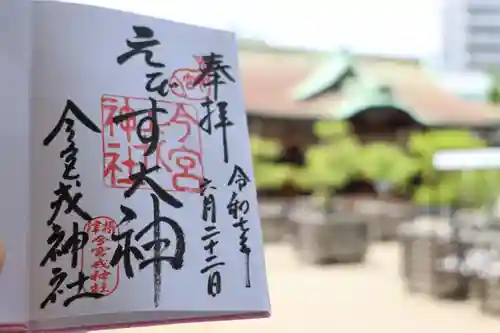 奉拝
令和七年
六月二十二日
えびす大神
今宮神社
今宮戎神社